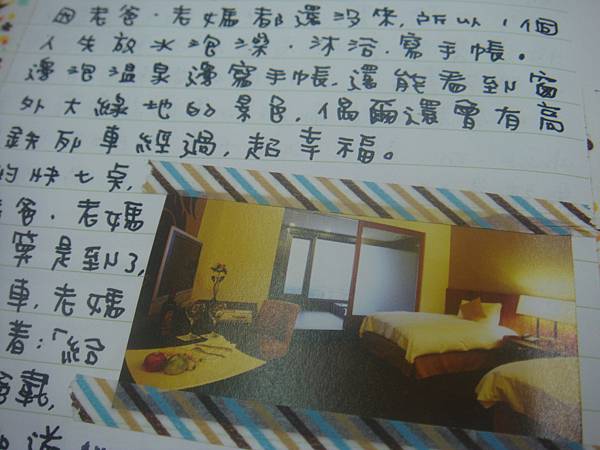 因老爸、老媽都還沒來,所以1個
人先放水泡澡、沐浴、寫手帳。
邊泡溫泉邊寫手帳,還能看到窗
外大綠地的景色,偶爾還會有高
鉄列車經過,超幸福。
約快七點,
老爸、老媽
算是到了,
車,老媽
著:「給
爸載,